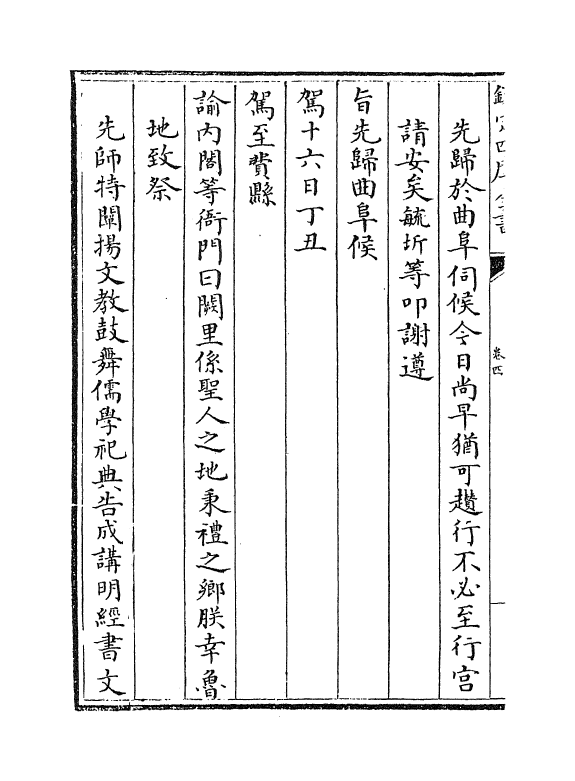 欽定四庫全書
卷四
先歸於曲阜伺候今日尚早猶可趲行不必至行宮
請安矣毓圻等叩謝遵
旨先歸曲阜候
駕十六日丁丑
駕至費縣
諭內閣等衙門曰闕里係聖人之地秉禮之鄉朕幸魯
地致祭
先師特闡揚文教鼓舞儒學祀典告成講明經書文